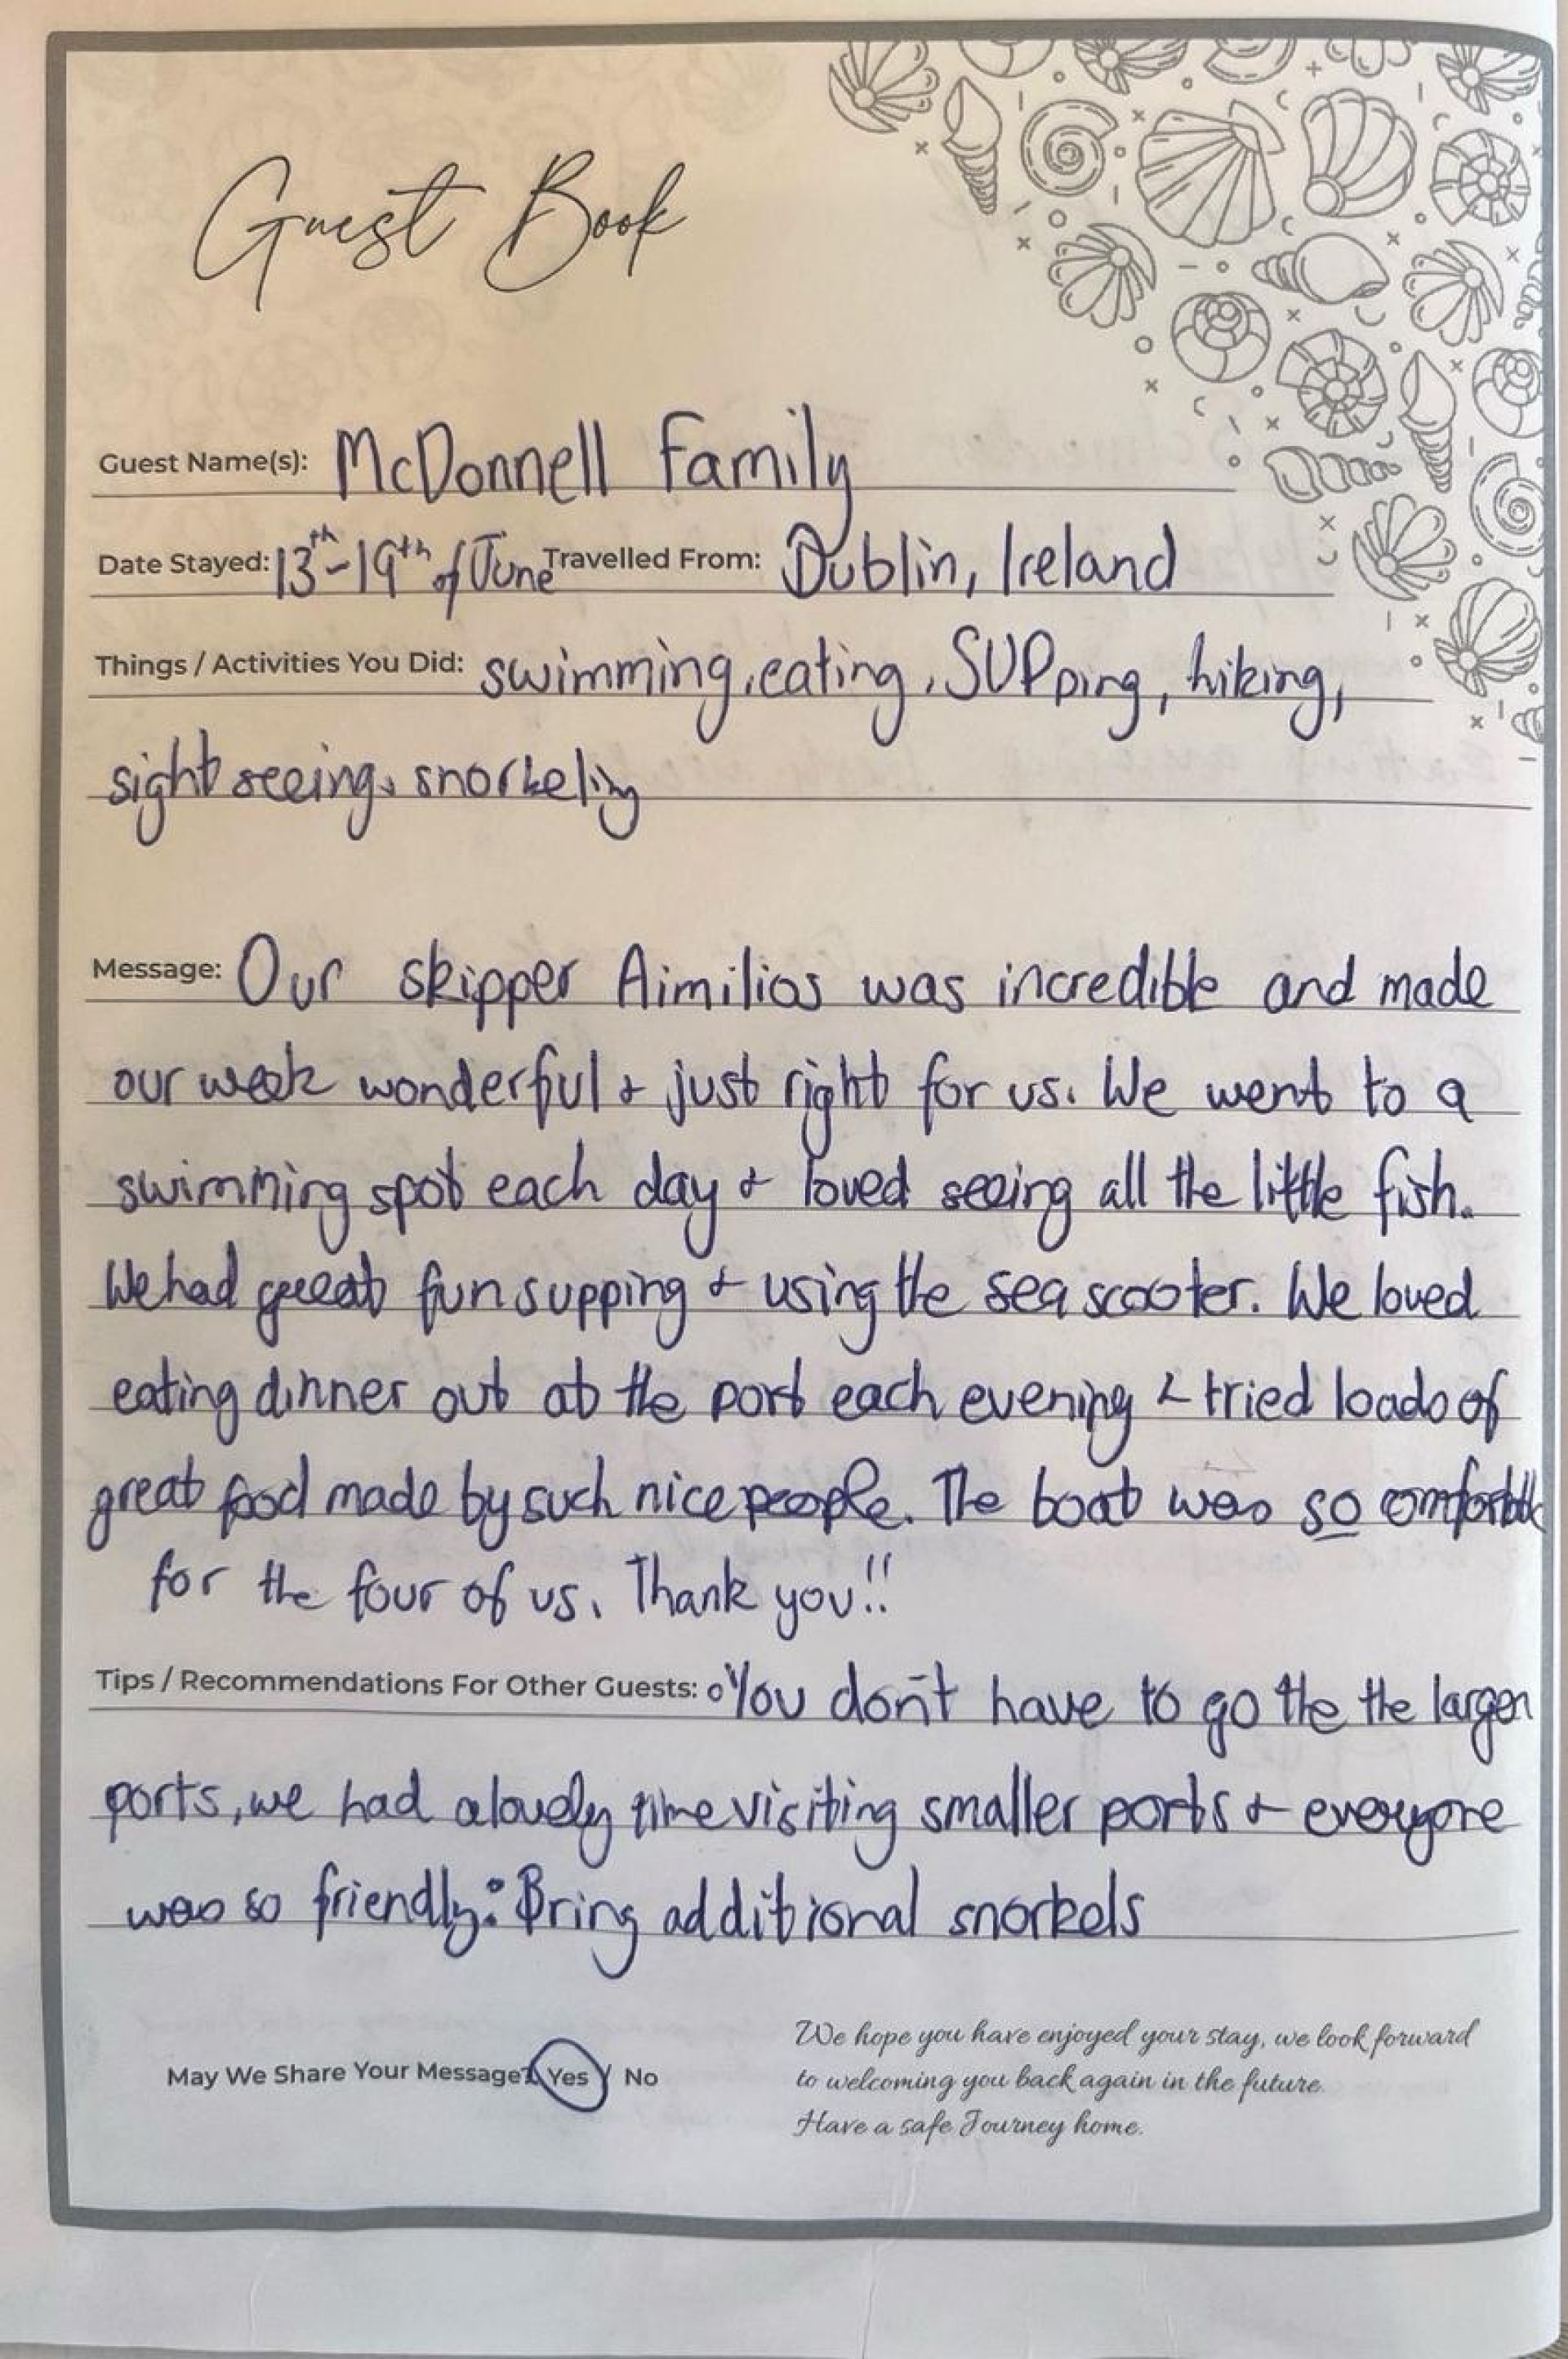 Guest Book
Guest Name(s): McDonnell Family
Date Stayed: 13th-19th of June Travelled From: Dublin, Ireland
Things / Activities You Did: swimming, eating, SUPping, hiking,
sight seeing, snorkeling
Message: Our skipper Aimilios was incredible and made
our week wonderful & just right for us. We went to a
swimming spot each day & loved seeing all the little fish.
We had great fun supping & using the sea scooter. We loved
eating dinner out at the port each evening & tried loads of
great food made by such nice people. The boat was so comfortable
for the four of us. Thank you!!
Tips / Recommendations For Other Guests: ◦You don't have to go the the larger
ports, we had a lovely time visiting smaller ports & everyone
was so friendly. ◦Bring additional snorkels
May We Share Your Message? Yes / No
We hope you have enjoyed your stay, we look forward
to welcoming you back again in the future.
Have a safe Journey home.